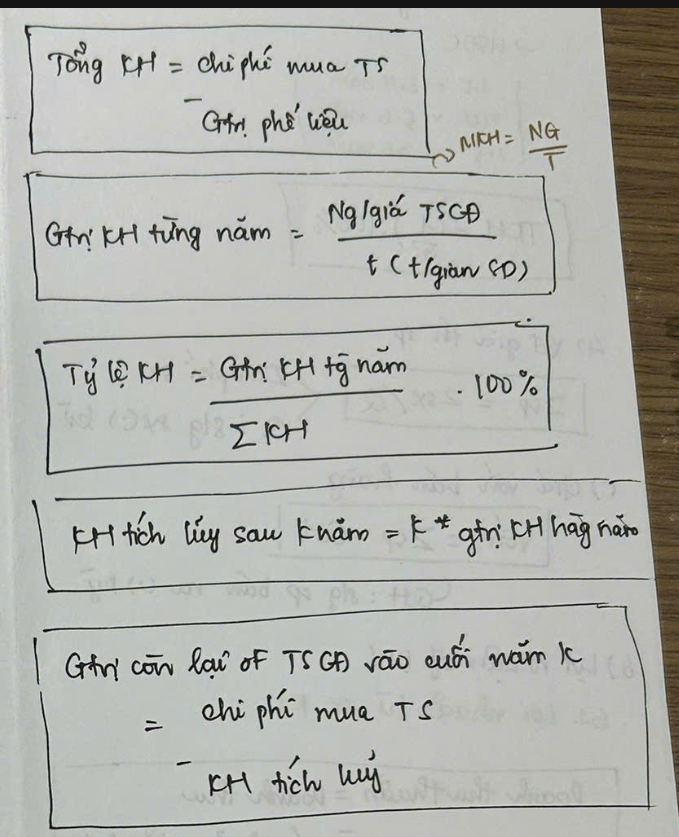 Tổng KH = chi phí mua TS
- Gtrị phế liệu
MKH = NG / T
Gtrị KH từng năm = Ng/giá TSCĐ / t (t/gian SD)
Tỷ lệ KH = Gtrị KH tg̃ năm / ∑ KH . 100%
KH tích lũy sau K năm = K * gtrị KH hàg năm
Gtrị còn lại of TSCĐ vào cuối năm K
= chi phí mua TS
- KH tích luỹ